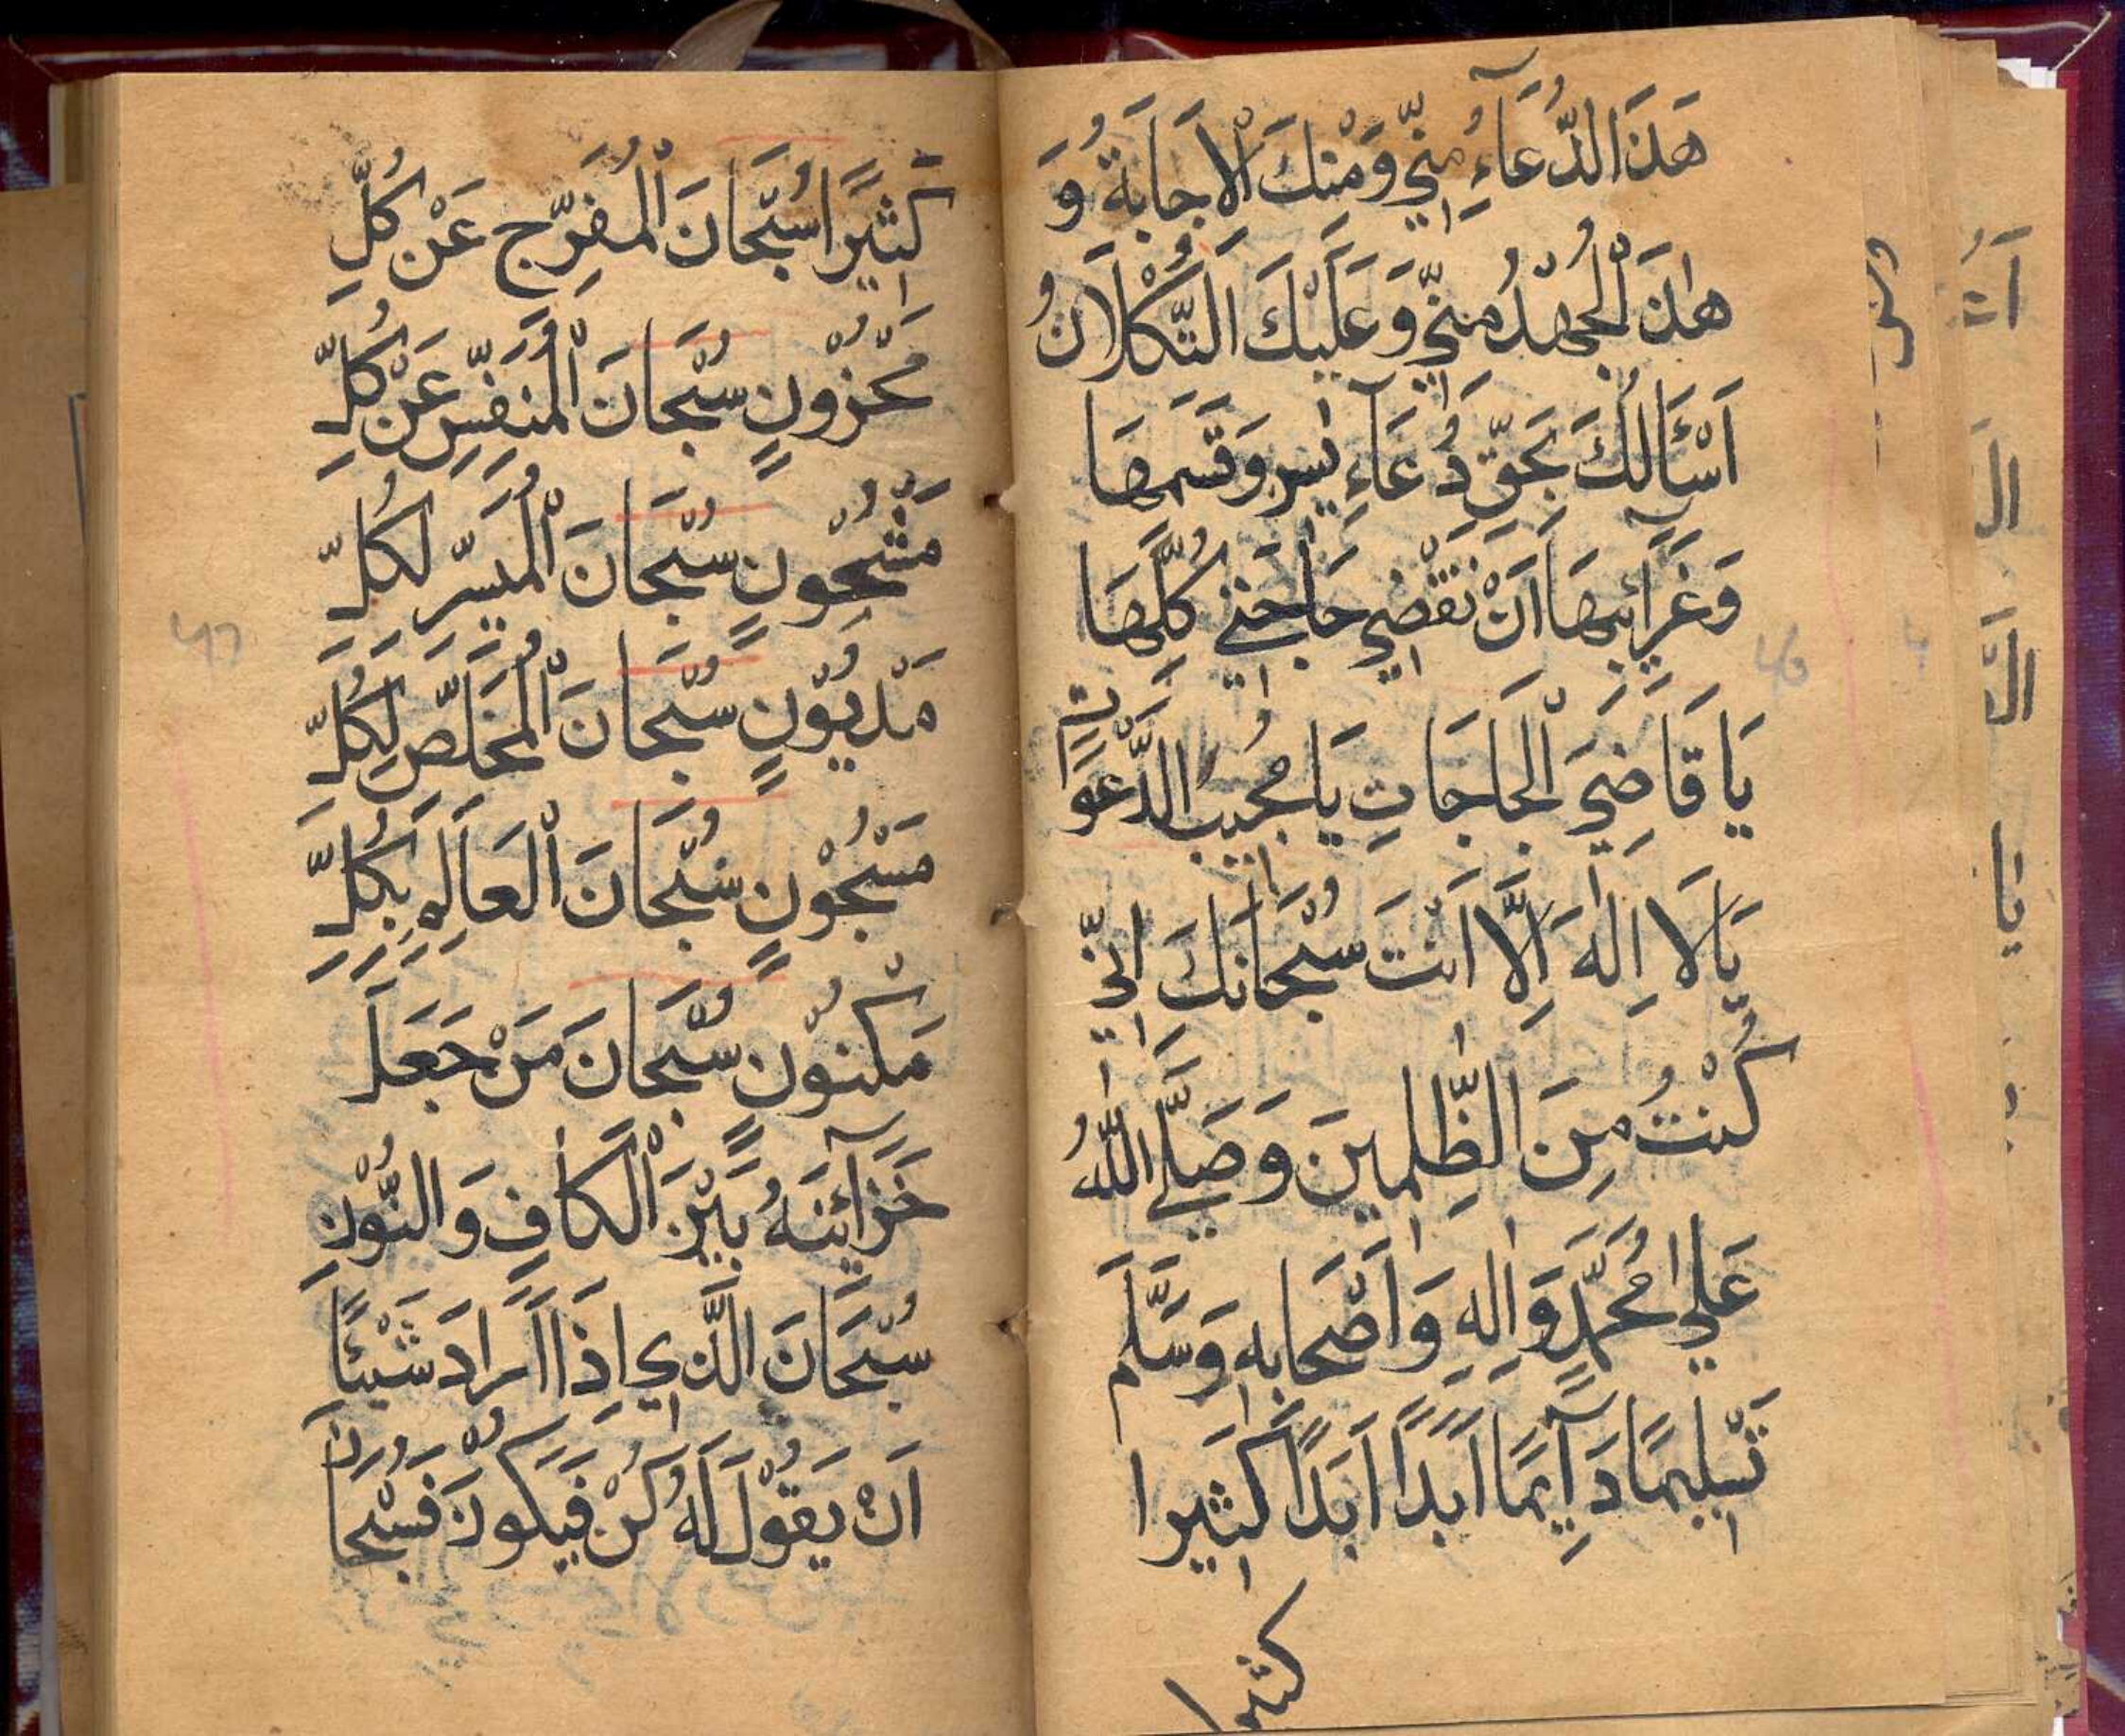 هَذَا الدُّعَآءُ مِنِّي وَمِنْكَ الْاِجَابَةُ وَ
هٰذَ الْجُهْدُ مِنِّي وَعَلَيْكَ التُّكْلَانُ
اَسْئَالُكَ بِحَقِّ دُعَآءِ يٰسٓ وَقَسَمِهَا
وَغَرَآئِبِهَا اَنْ تَقْضِي حَاجَتِي كُلَّهَا
يَا قَاضِيَ الْحَاجَاتِ يَا مُجِيبَ الدَّعْوَاتِ
يَا لَا اِلٰهَ اِلَّا اَنْتَ سُبْحَانَكَ اِنِّي
كُنْتُ مِنَ الظّٰلِمِينَ وَصَلَّي اللّٰهُ
عَلٰي مُحَمَّدٍ وَاٰلِهِ وَاَصْحَابِهِ وَسَلَّمَ
تَسْلِيمًا دَآيِمًا اَبَدًا اَبَدًا كَثِيرا
كثيرا
كَثِيرًا سُبْحَانَ الْمُفَرِّجِ عَنْ كُلِّ
مَحْزُونٍ سُبْحَانَ الْمُنَفِّسِ عَنْ كُلِّ
مَشْحُونٍ سُبْحَانَ الْمُيَسِّرِ لِكُلِّ
مَدْيُوْنٍ سُبْحَانَ الْمُخَلِّصِ لِكُلِّ
مَسْجُوْنٍ سُبْحَانَ الْعَالِمِ بِكُلِّ
مَكْنُوْنٍ سُبْحَانَ مَنْ جَعَلَ
خَزَآئِنَهُ بَيْنَ الْكَافِ وَالنُّوْنِ
سُبْحَانَ الَّذِي اِذَا اَرَادَ شَيْئًا
اَنْ يَقُوْلَ لَهُ كُنْ فَيَكُونُ فَسُبْحَانَ